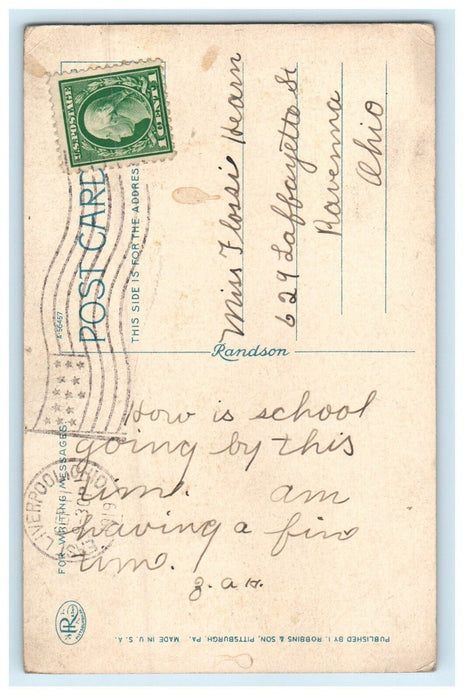 U.S. POSTAGE
1 CENT 1
POST CARD
THIS SIDE IS FOR THE ADDRESS
A-56457
FOR WRITING MESSAGES
Miss Flossie Hearn
629 Laffayette St
Ravenna
Ohio
Randson
How is school
going by this
time. am
having a fine
time.
J. a H.
LIVERPOOL, OHIO
PUBLISHED BY I. ROBBINS & SON, PITTSBURGH, PA. MADE IN U. S. A.